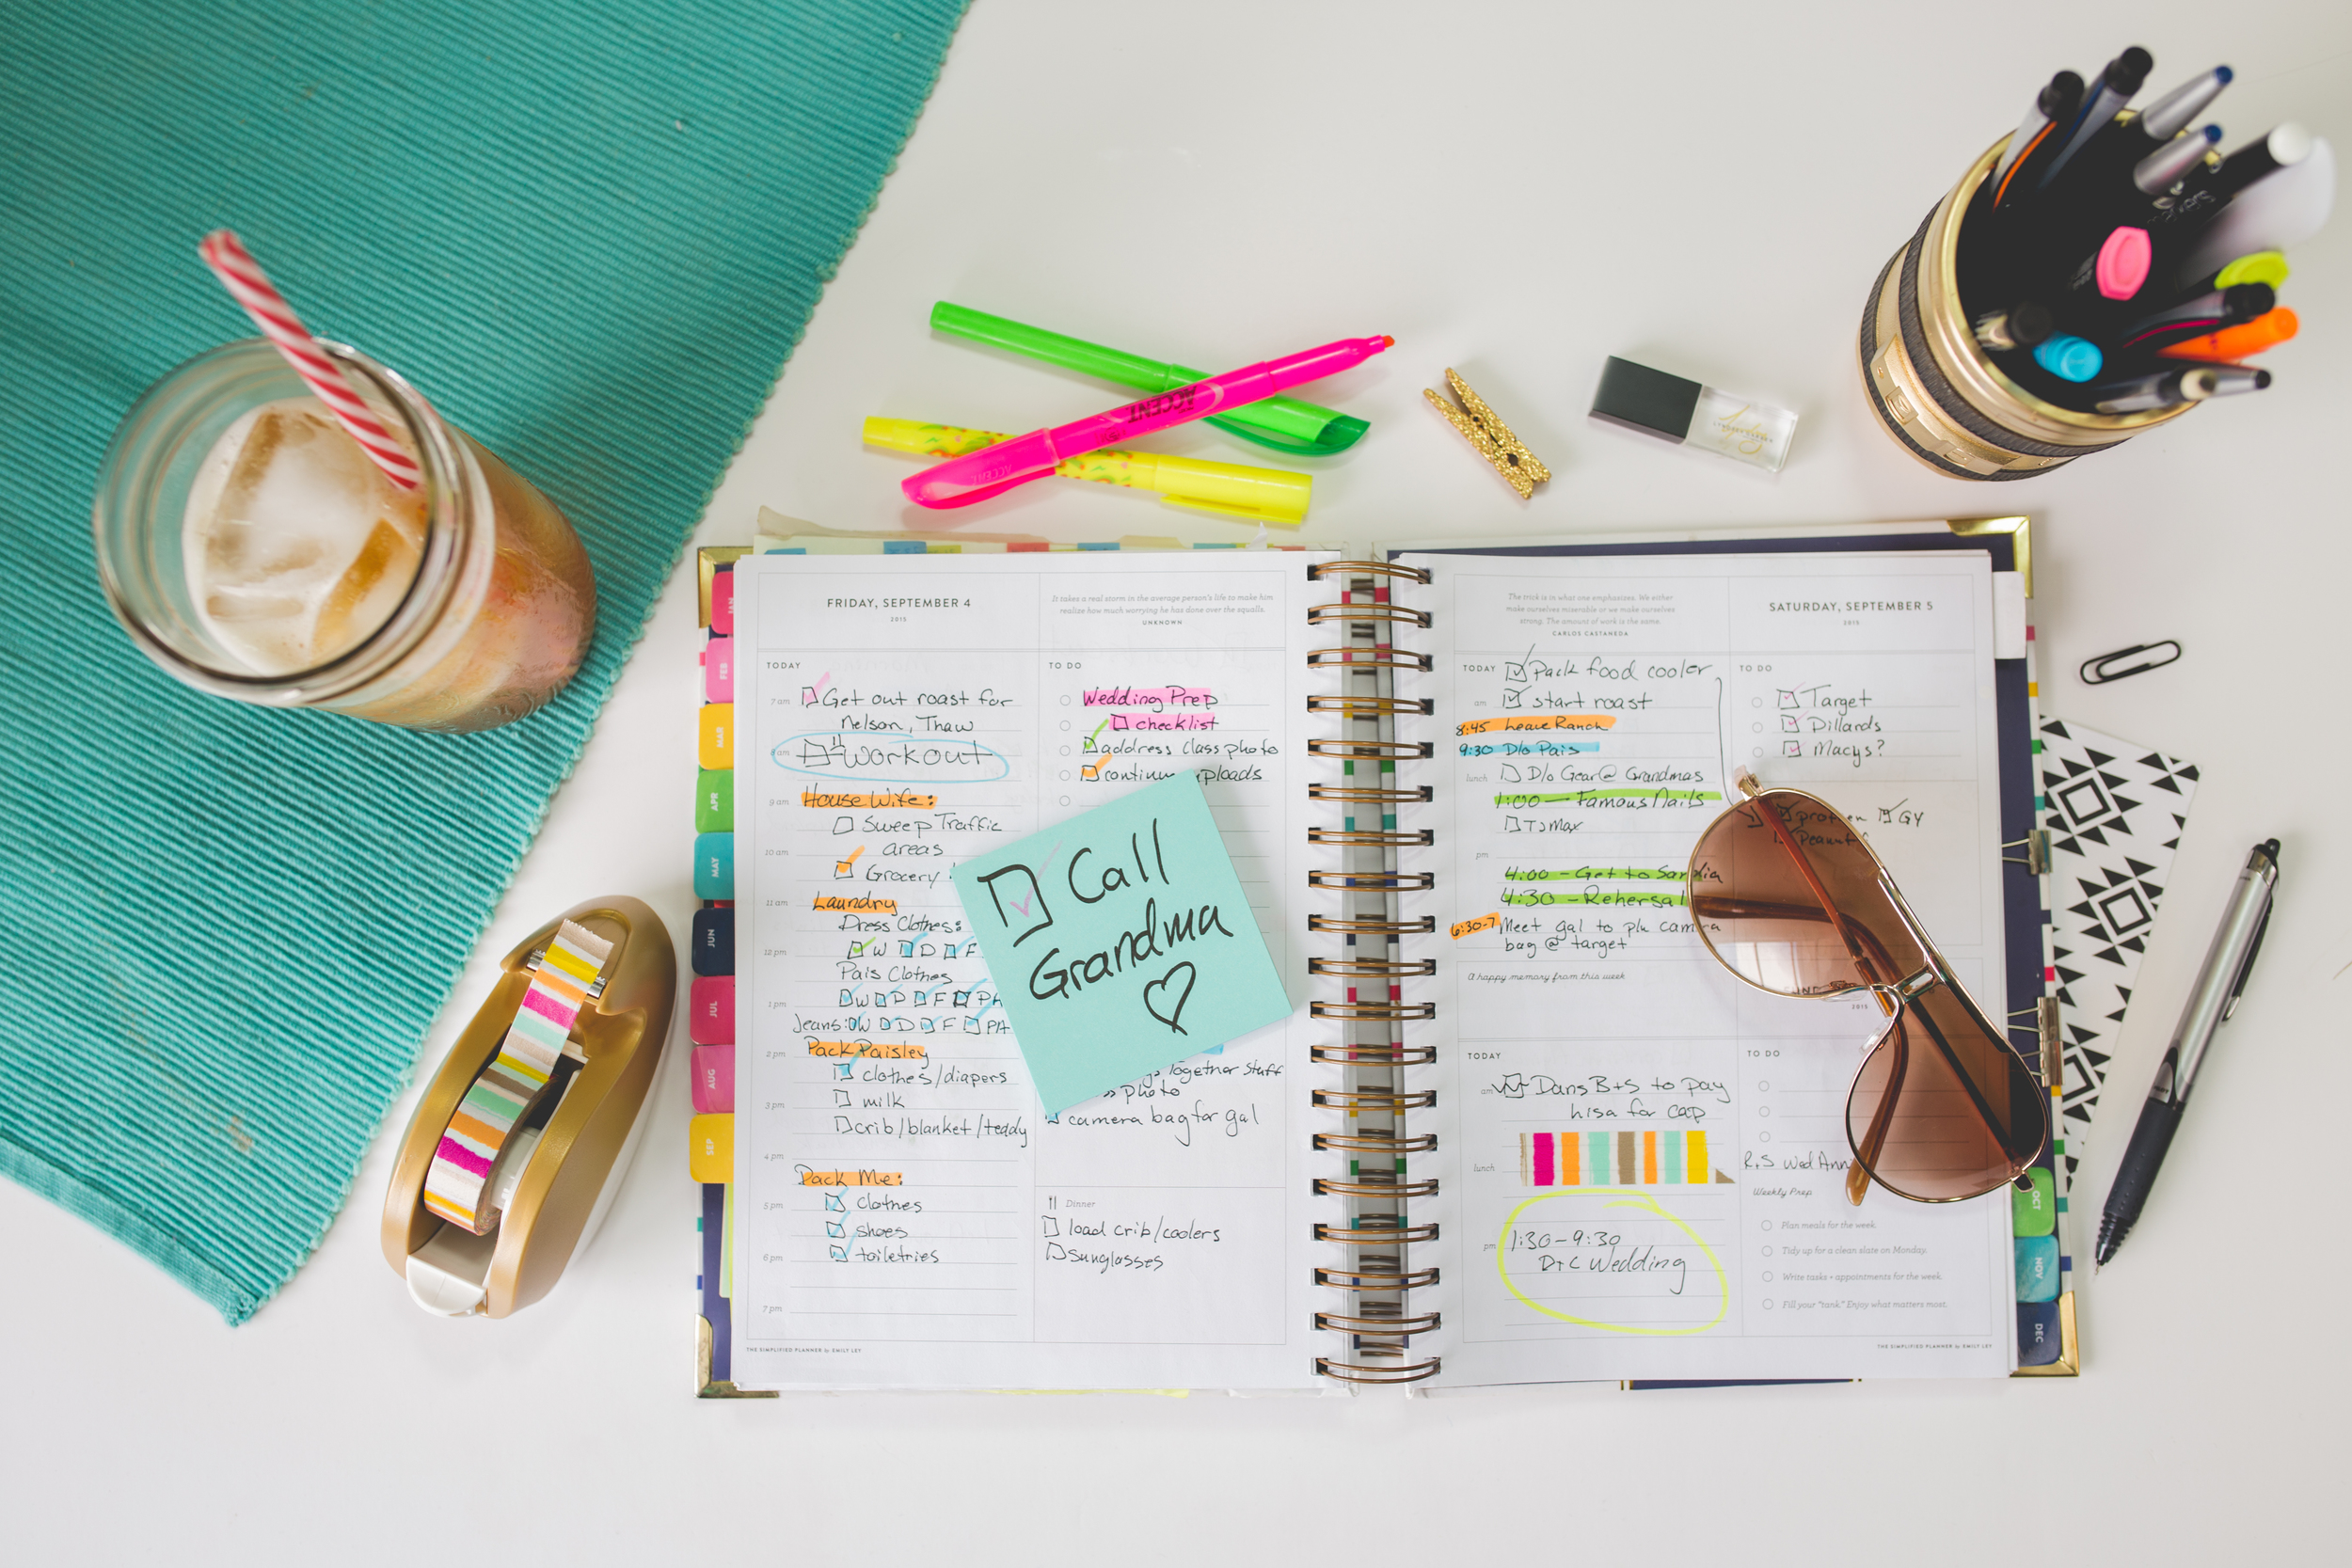 ACCENT
JAN
FEB
MAR
APR
MAY
JUN
JUL
AUG
SEP
FRIDAY, SEPTEMBER 4
2015
It takes a real storm in the average person's life to make him
realize how much worrying he has done over the squalls.
UNKNOWN
TODAY
7 am Get out roast for
Nelson, Thaw
8 am Workout
9 am House Wife:
Sweep Traffic
areas
10 am Grocery
11 am Laundry
Dress Clothes:
12 pm W D D F
Pais Clothes
1 pm W D F PA
Jeans: W D F PA
2 pm Pack Paisley
clothes/diapers
3 pm milk
crib/blanket/teddy
4 pm
Pack Me:
5 pm clothes
shoes
6 pm toiletries
7 pm
THE SIMPLIFIED PLANNER by EMILY LEY
TO DO
Wedding Prep
checklist
address class photo
continue uploads
Call
Grandma
together stuff
photo
camera bag for gal
Dinner
load crib/coolers
sunglasses
The trick is in what one emphasizes. We either
make ourselves miserable or we make ourselves
strong. The amount of work is the same.
CARLOS CASTANEDA
SATURDAY, SEPTEMBER 5
2015
TODAY Pack food cooler
am start roast
8:45 Leave Ranch
9:30 D/o Pais
lunch D/o Gear @ Grandmas
1:00 — Famous Nails
TJ Max
pm
4:00 - Get to
4:30 - Rehersal
6:30-7 Meet gal to p/u camera
bag @ target
A happy memory from this week
TO DO
Target
Dillards
Macys?
protien GY
Peanut
2015
TODAY
am Dans B+S to pay
hisa for cap
lunch
pm 1:30-9:30
D+C Wedding
TO DO
R.S Wed Ann
Weekly Prep
Plan meals for the week.
Tidy up for a clean slate on Monday.
Write tasks + appointments for the week.
Fill your "tank." Enjoy what matters most.
THE SIMPLIFIED PLANNER by EMILY LEY
OCT
NOV
DEC